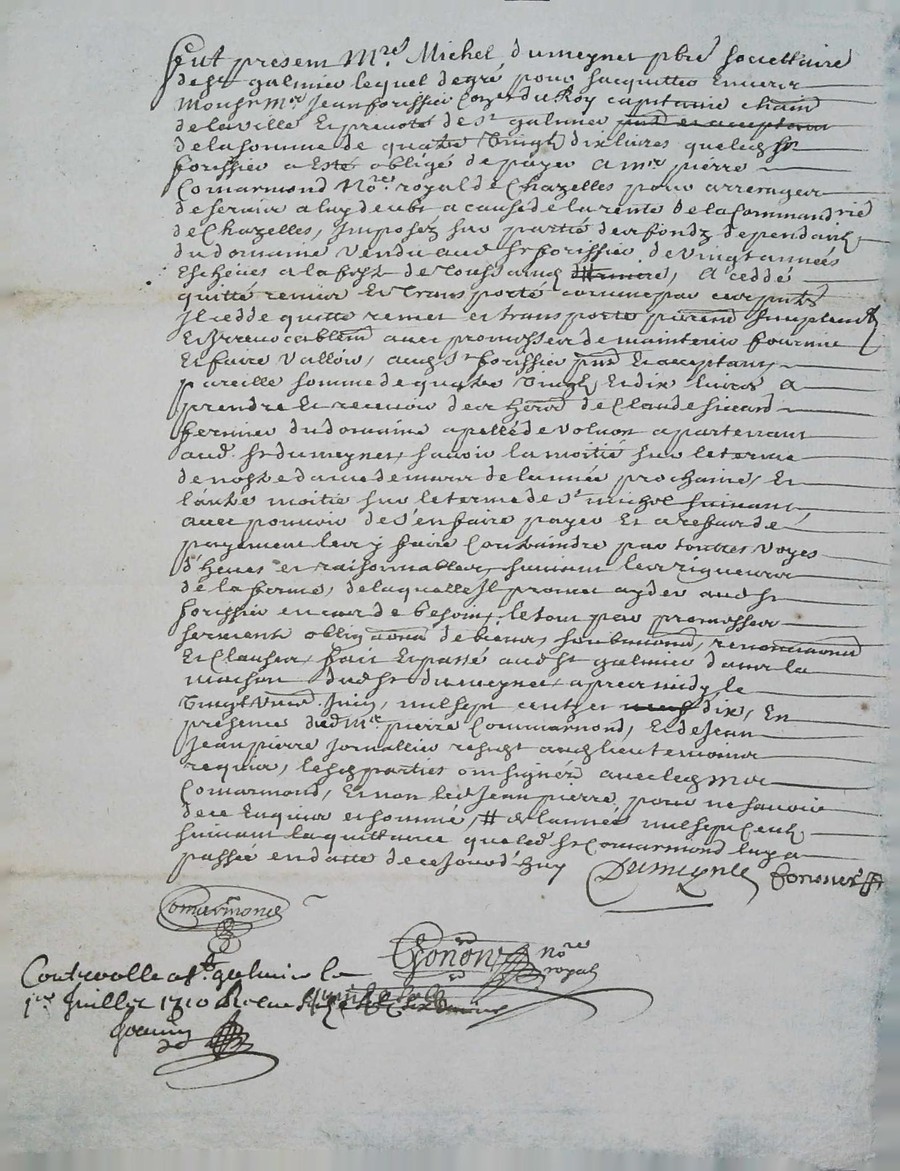 Fut present Mre Michel dumeynet pbre societtaire
de st galmier lequel de gré pour sacquitter Envers
Monsr mre Jean forissier Coner du Roy capitaine chatn
de la ville Et prevoté de st galmier
de la somme de quatre Vingts dix livres que led sr
forissier a Esté obligé de payer a mre pierre
Comarmond Nore royal de Chazelles pour arrerages
de servis a luy deubt a cause de la rente de la Commanderie
de Chazelles, Imposez sur partie des fondz dependants
du domaine vendu aud sr forissier de vingt années
Escheues a la feste de toussaincts, A ceddé
quitté remis Et transporté comme par ces pntes
Il cedde quitte remet et transporte purement simplement
Et Irrevocablemt avec promesse de maintenir fournir
Et faire valloir, aud sr forissier pnt Et acceptant
pareille somme de quatre Vingts Et dix livres a
prendre Et recevoir des hers de Claude sicard
fermier du domaine apellé de volvon apartenant
aud. sr dumeynet, savoir la moitié sur le terme
de nostre dame de mars de l'année prochaine, Et
l'autre moitié sur le terme de st michel suivant
avec pouvoir de s'en faire payer Et a refus de
payement les y faire Contraindre par touttes voyes
d'heues et raisonnables, suivant les rigueurs
de la ferme, de laquelle Il promet ayder aud sr
forissier en cas de besoin, le tout par promesses
serments obligaons de biens, soubmions, renonciaons
Et Clauses, fait Et passé aud st galmier dans la
maison dud sr dumeynet apres midy le
Vingt Juin, mil sept centz et dix, En
presence dud Mre pierre Commarmond, Et de Jean
Jean pierre Jornallier resident aud lieu temoins
requis, lesd parties ont signéz avec led mre
Comarmond, Et non led Jean pierre pour ne savoir
de ce Enquis et sommé, # de lannée mil sept Cents
suivant la quittance que led sr Comarmond luy a
passée en datte de ce Jourd'huy Dumeynet forissier
Comarmond
Gonon nore
royal
Controllé a st galmier le
1er Juillet 1710 Receu